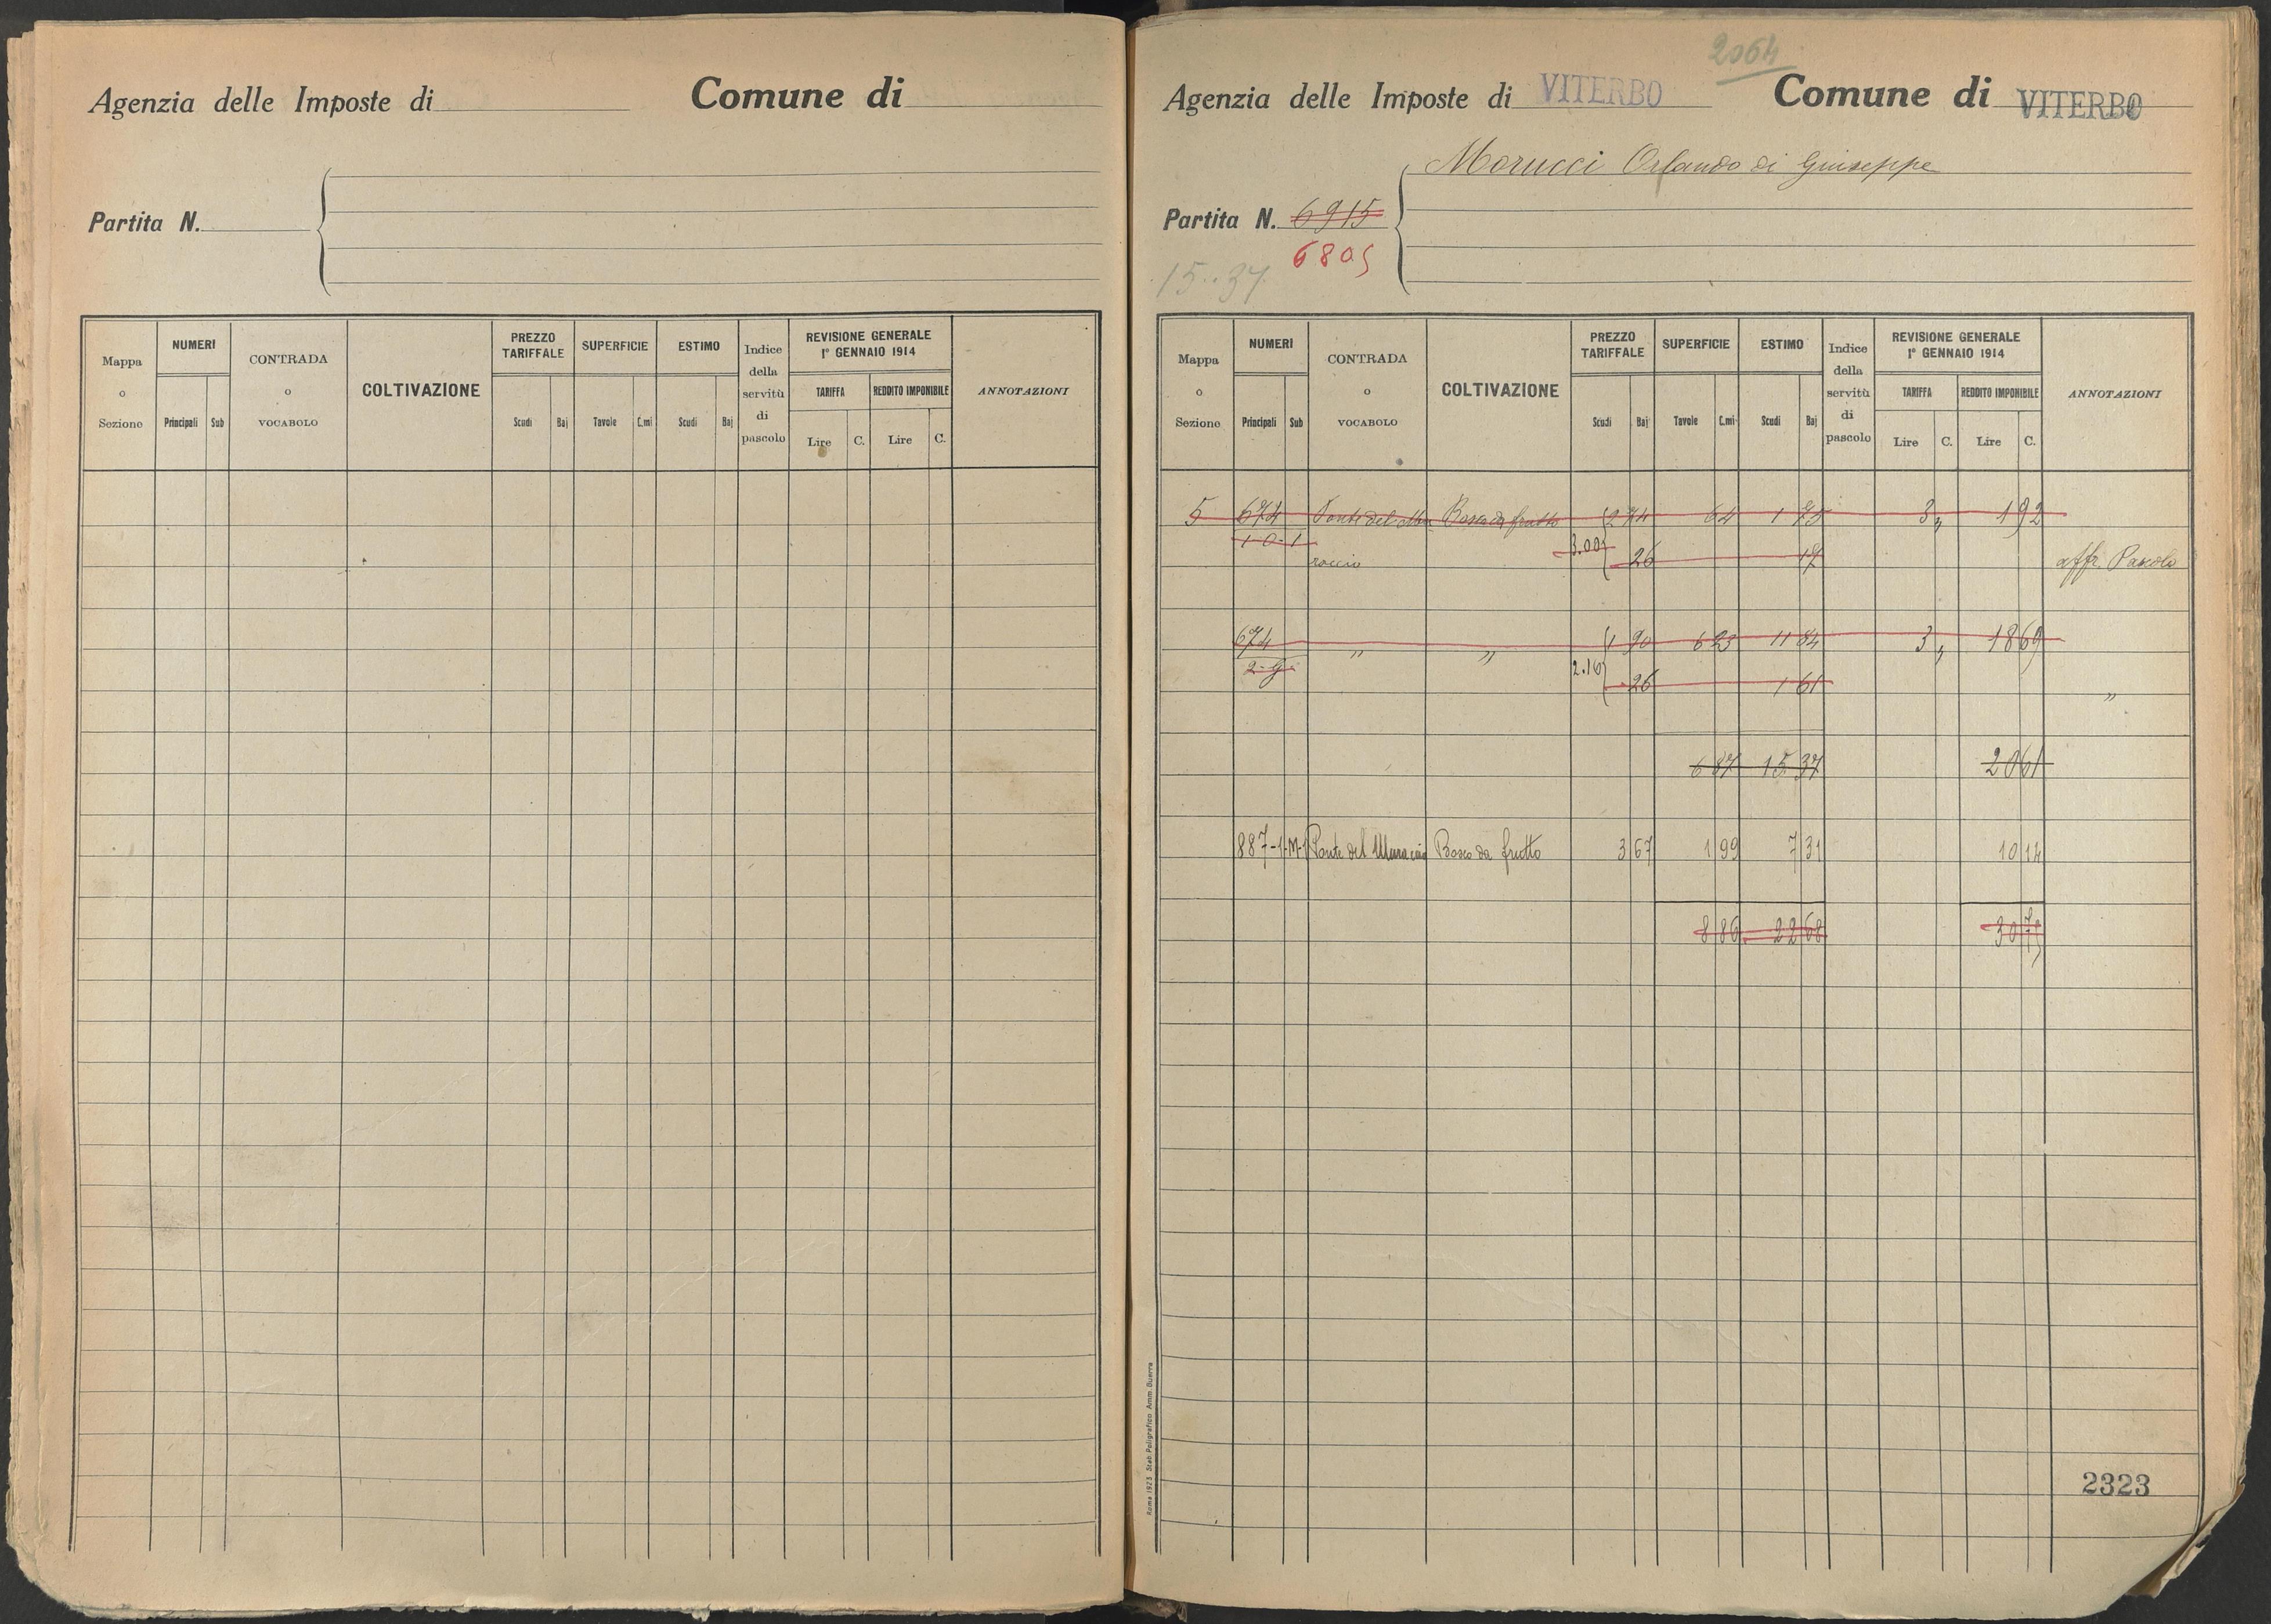 Agenzia delle Imposte di Comune di
Partita N.
Mappa o Sezione NUMERI CONTRADA o VOCABOLO COLTIVAZIONE PREZZO TARIFFALE SUPERFICIE ESTIMO Indice della servitù di pascolo REVISIONE GENERALE 1° GENNAIO 1914 ANNOTAZIONI
TARIFFA REDDITO IMPONIBILE
Principali Sub Scudi Baj Tavole C.mi Scudi Baj Lire C. Lire C.
2064
Agenzia delle Imposte di VITERBO Comune di VITERBO
Morucci Orlando di Giuseppe
Partita N. 6915
6805
15..37
Mappa o Sezione NUMERI CONTRADA o VOCABOLO COLTIVAZIONE PREZZO TARIFFALE SUPERFICIE ESTIMO Indice della servitù di pascolo REVISIONE GENERALE 1° GENNAIO 1914 ANNOTAZIONI
TARIFFA REDDITO IMPONIBILE
Principali Sub Scudi Baj Tavole C.mi Scudi Baj Lire C. Lire C.
5 674 Ponte del Mu Bosco da frutto 2 74 64 1 75 3 „ 1 92
1-0-1 raccio 3.00 26 17 affr. Pascolo
674 „ „ 1 90 6 23 11 84 3 „ 18 69
2- 2.16 26 1 61 „
6 87 15 37 20 61
887-1-M-1 Ponte del Muraccio Bosco da frutto 3 67 1 99 7 31 10 14
8 86 22 68 30 75
2323
Roma 1923 Stab. Poligrafico Amm. Guerra